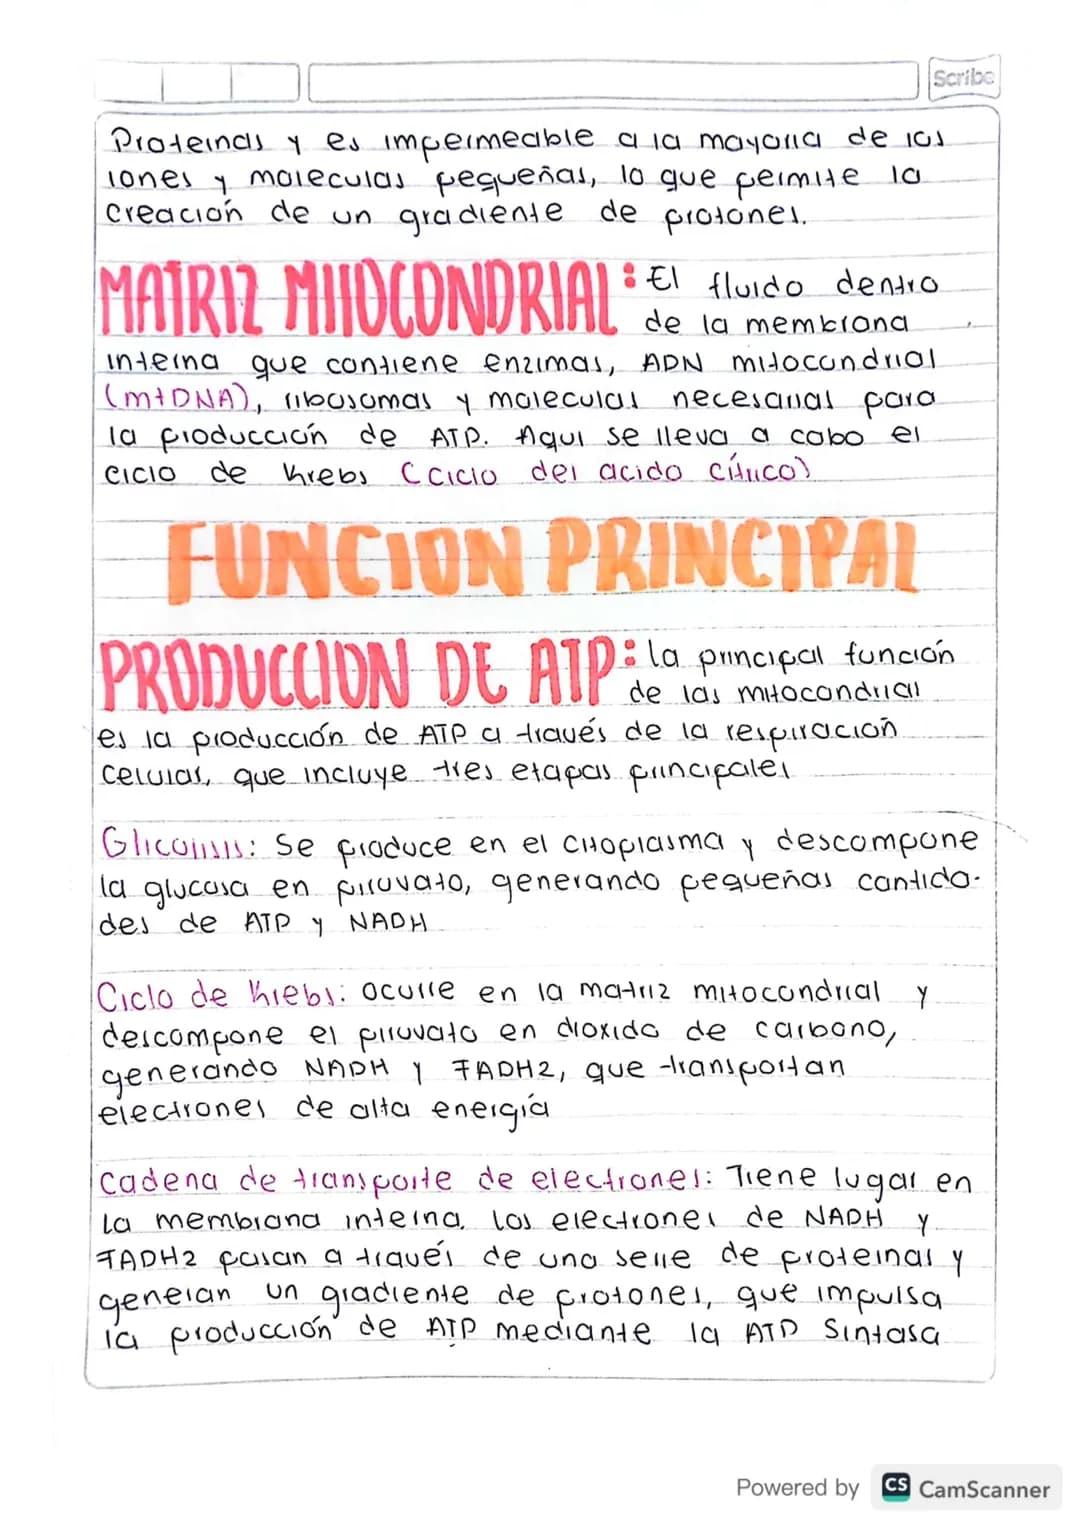 Scribe
Proteinas y es impermeable a la mayoria de los
iones y moleculas pequeñas, lo que permite la
creación de un gradiente de protones.
MATRIZ MITOCONDRIAL: El fluido dentro
de la membrana
interna que contiene enzimas, ADN mitocondrial
(mtDNA), ribosomas y moleculas necesarias para
la producción de ATP. Aqui se lleva a cabo el
ciclo de Krebs (ciclo del acido cítrico)
FUNCION PRINCIPAL
PRODUCCION DE ATP: la principal función
de las mitocondrias
es la producción de ATP a través de la respiración
celular, que incluye tres etapas principales
Glicolisis: Se produce en el citoplasma y descompone
la glucosa en piruvato, generando pequeñas cantida-
des de ATP y NADH
Ciclo de Krebs: ocurre en la matriz mitocondrial y
descompone el piruvato en dioxido de carbono,
generando NADH y FADH2, que transportan
electrones de alta energía
Cadena de transporte de electrones: Tiene lugar en
La membrana interna. Los electrones de NADH y
FADH2 pasan a través de una serie de proteinas y
generan un gradiente de protones, que impulsa
la producción de ATP mediante la ATP Sintasa
Powered by CS CamScanner